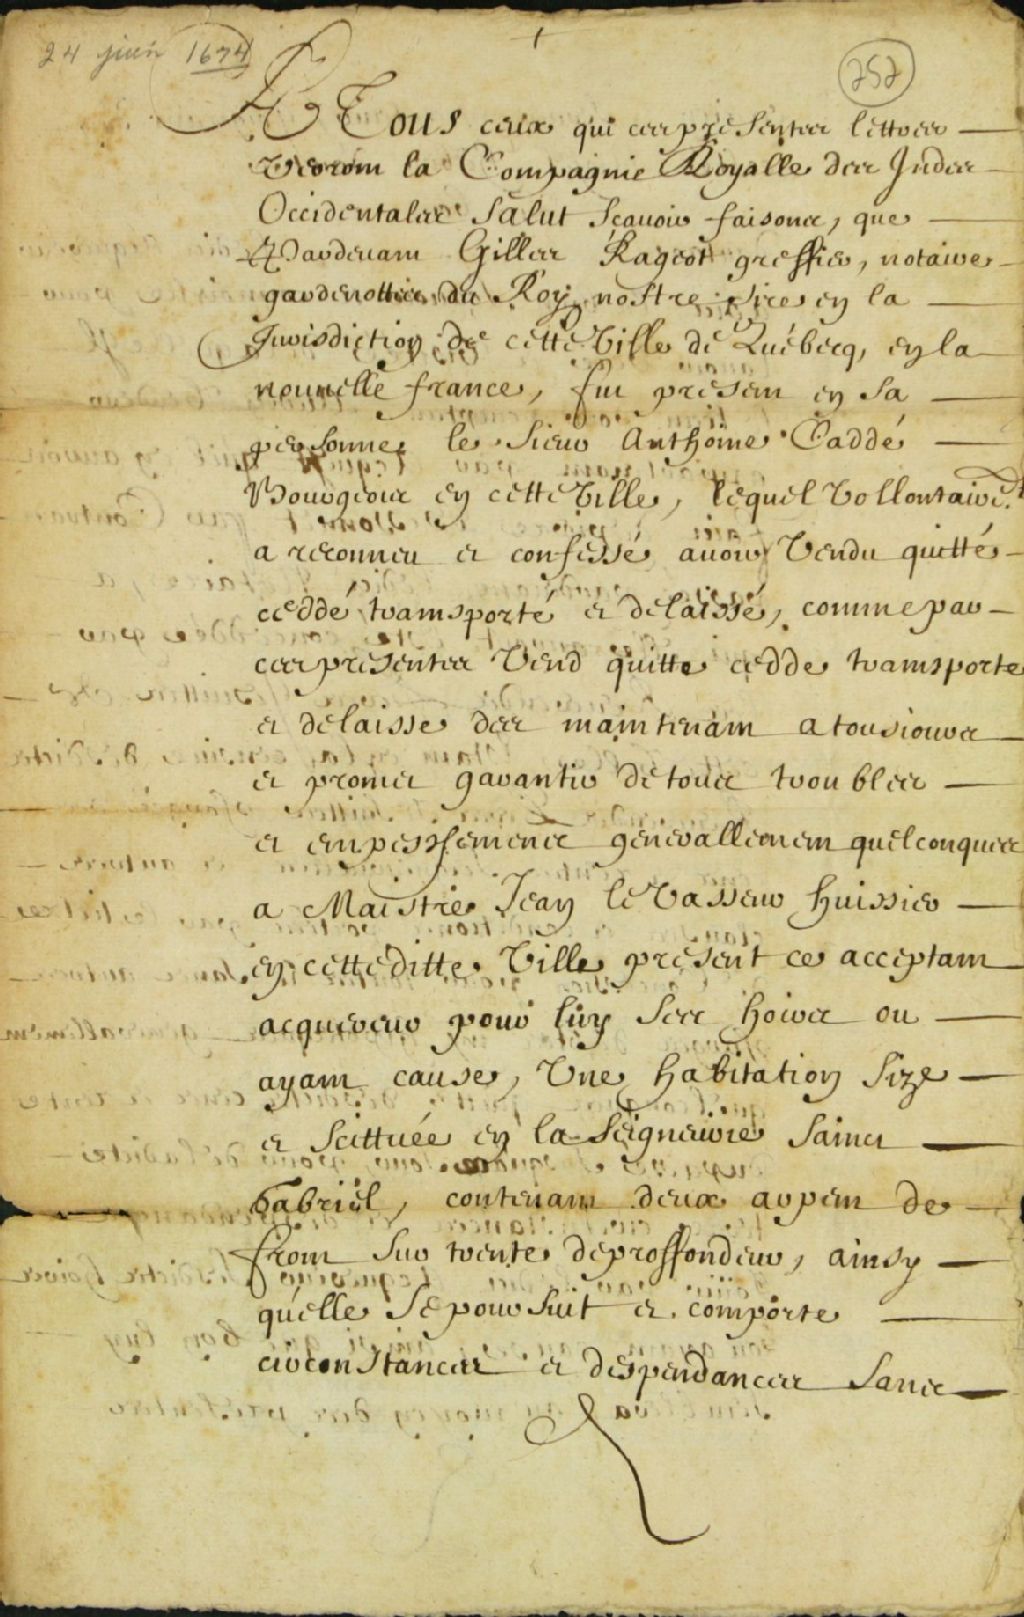 24 juin 1674
252
A Tous ceux qui ces presentes lettres
Verront la Compagnie Royalle des Indes
Occidentales Salut Scauoir faisons, que
Pardeuant Gilles Rageot greffier, notaire
gardenottes du Roy nostre Sire en la
Jurisdiction de cette Ville de Québecq, en la
nouuelle france, fut présent en sa
personne le Sieur Anthoine Caddé
Bourgeois en cette Ville, lequel Vollontairemt
a reconneu et confessé auoir Vendu quitté
ceddé transporté et delaissé, comme par
ces presentes Vend quitte cedde transporte
et delaisse des maintenant a tousiours
et promet garantir de tous troubles
et empeschements generallement quelconques
a Maistre Jean le Vasseur huissier
en cetteditte Ville présent ce acceptant
acquereur pour luy Ses hoirs ou
ayant cause, Une habitation Size
et Scittuée en la Seigneurie Sainct
Gabriel, contenant deux arpent de
front Sur trente de proffondeur, ainsy
qu'elle Se poursuit et comporte
circonstances et despendances Sans